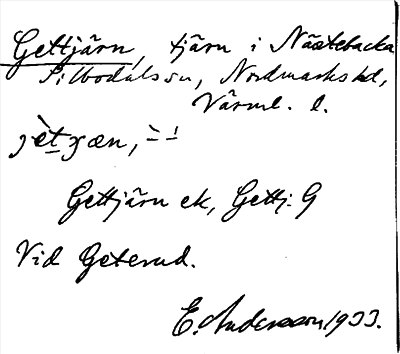 Gettjärn, tjärn i Nästebacka
Silbodals sn, Nordmarks hd,
Värml. l.
Gettjärn ek, Gettj: G
Vid Geterud.
E. Andersson 1933.